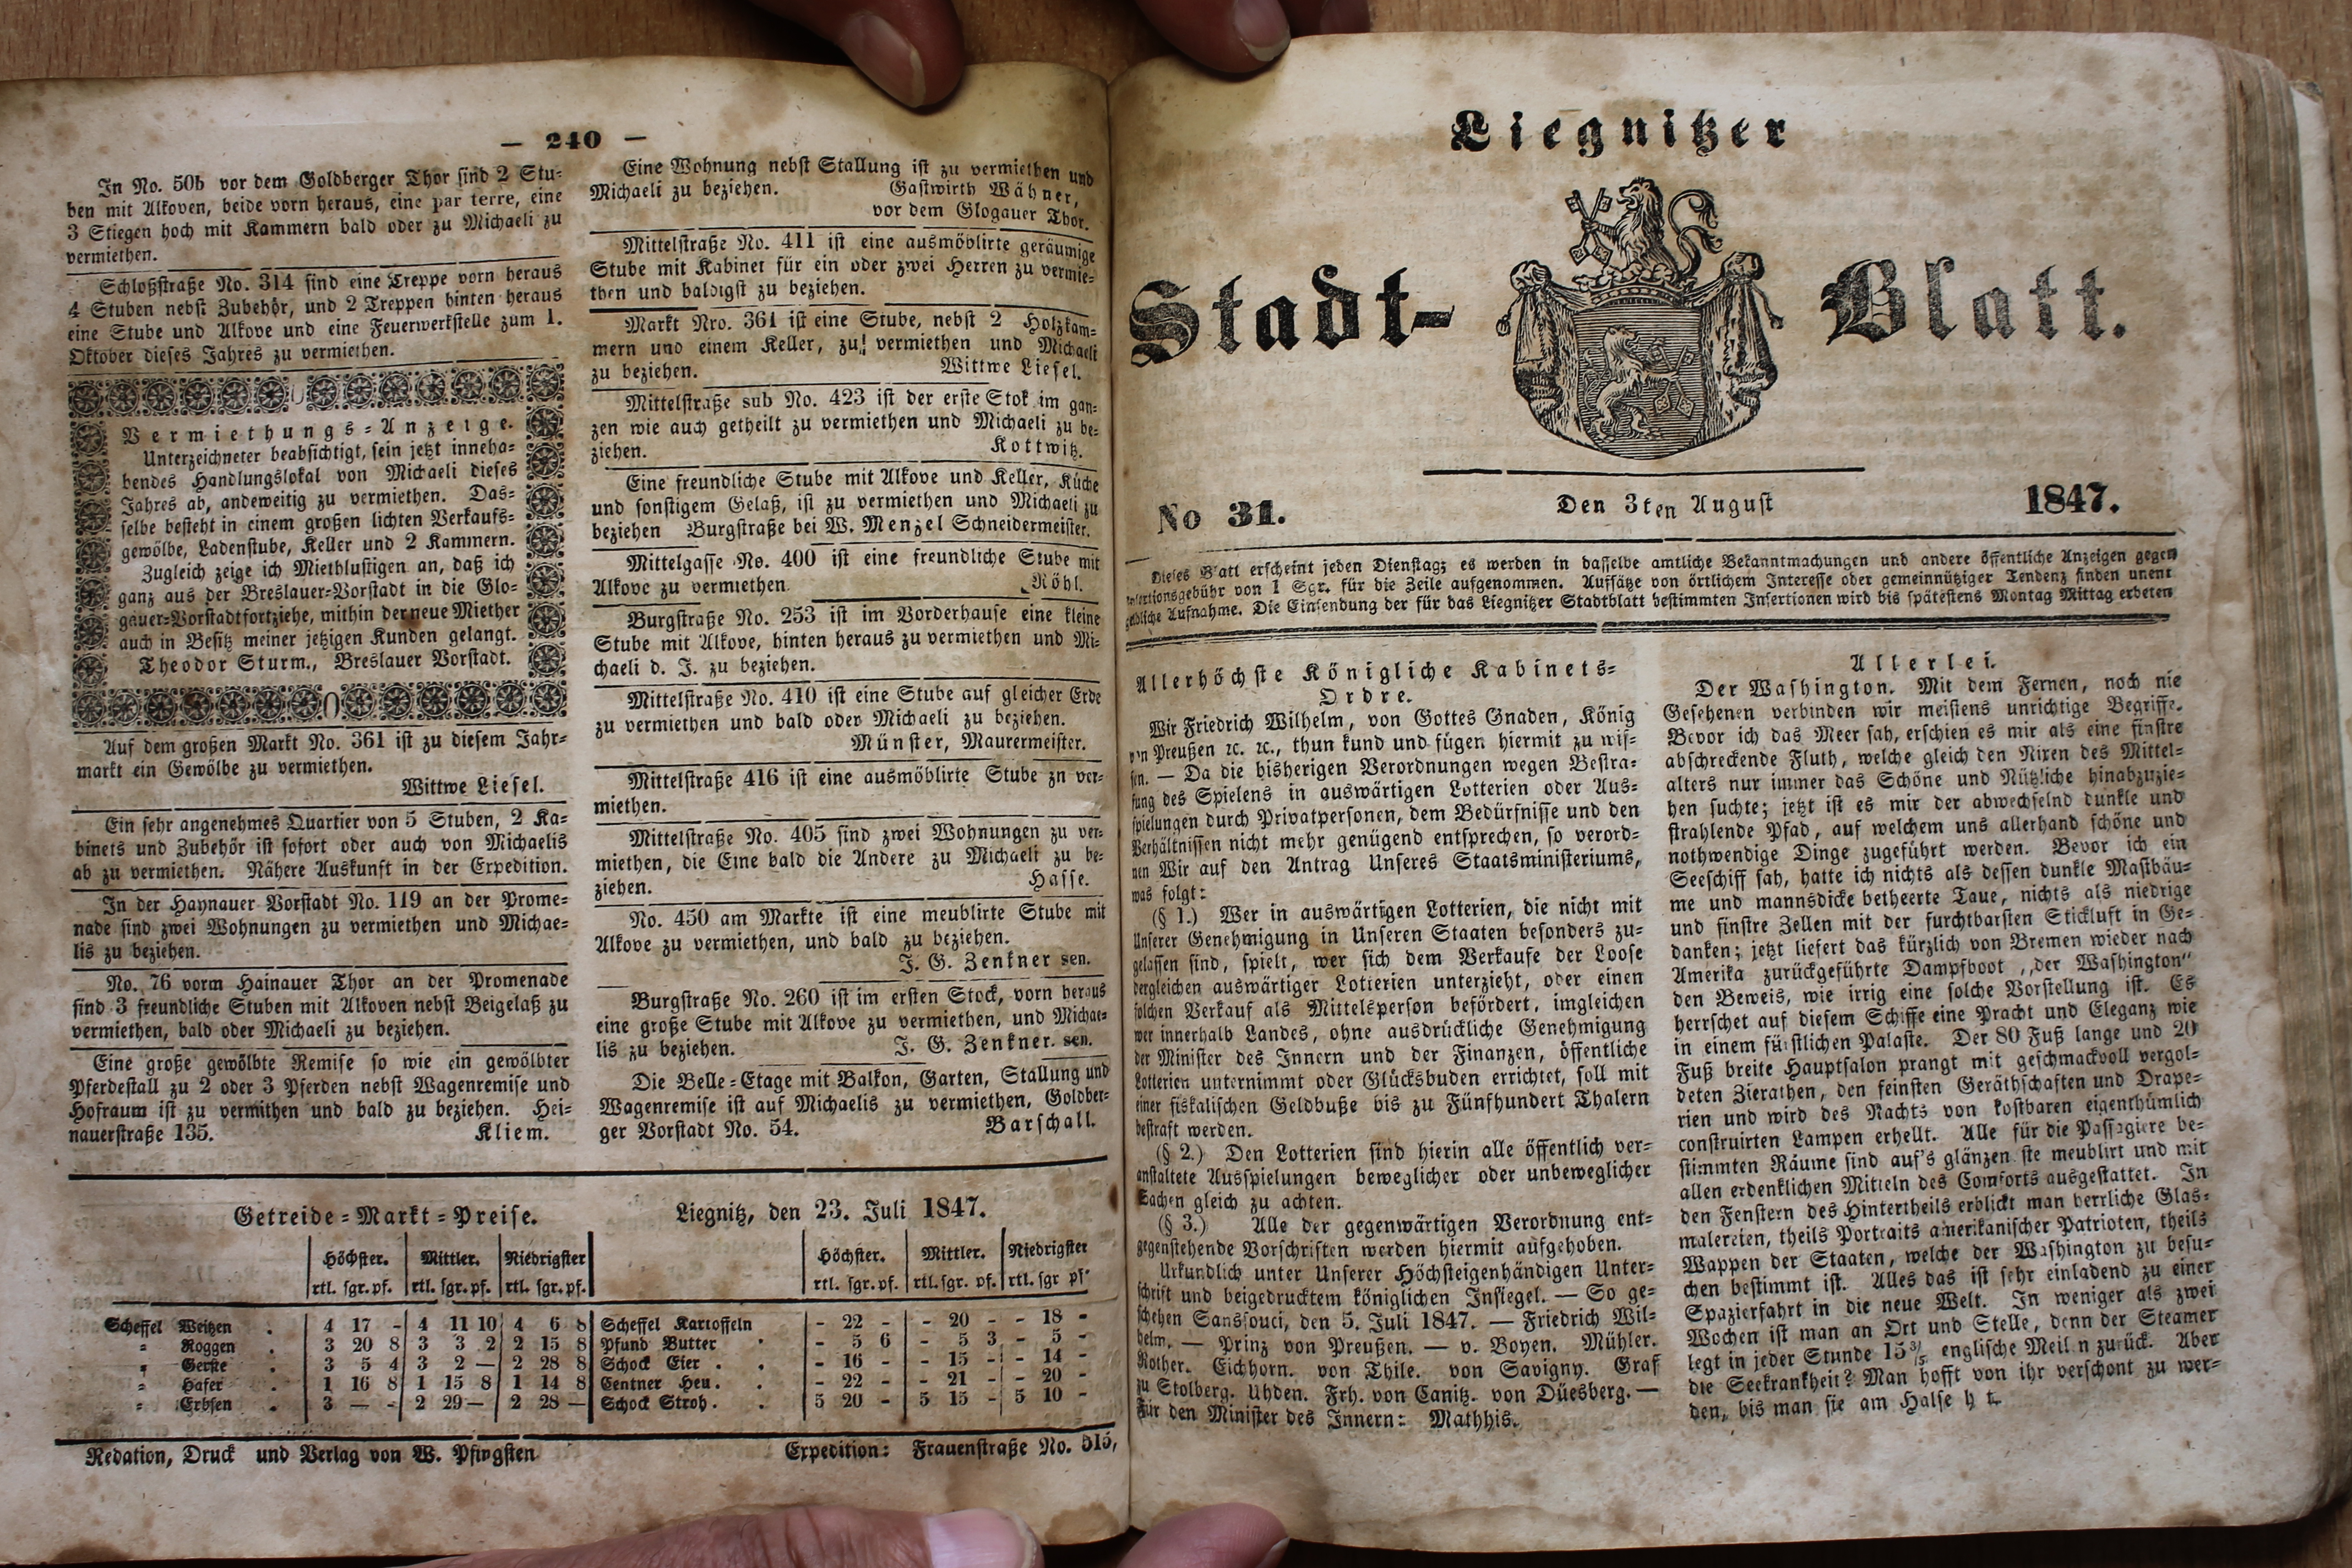 — 240 —
In No. 50b vor dem Goldberger Thor sind 2 Stu-
ben mit Alkoven, beide vorn heraus, eine par terre, eine
3 Stiegen hoch mit Kammern bald oder zu Michaeli zu
vermiethen.
Schloßstraße No. 314 sind eine Treppe vorn heraus
4 Stuben nebst Zubehör, und 2 Treppen hinten heraus
eine Stube und Alkove und eine Feuerwerkstelle zum 1.
Oktober dieses Jahres zu vermiethen.
Vermiethungs-Anzeige.
Unterzeichneter beabsichtigt, sein jetzt inneha-
bendes Handlungslokal von Michaeli dieses
Jahres ab, andeweitig zu vermiethen. Das-
selbe besteht in einem großen lichten Verkaufs-
gewölbe, Ladenstube, Keller und 2 Kammern.
Zugleich zeige ich Miethlustigen an, daß ich
ganz aus der Breslauer-Vorstadt in die Glo-
gauer-Vorstadt fortziehe, mithin der neue Miether
auch in Besitz meiner jetzigen Kunden gelangt.
Theodor Sturm., Breslauer Vorstadt.
Auf dem großen Markt No. 361 ist zu diesem Jahr-
markt ein Gewölbe zu vermiethen.
Wittwe Liesel.
Ein sehr angenehmes Quartier von 5 Stuben, 2 Ka-
binets und Zubehör ist sofort oder auch von Michaelis
ab zu vermiethen. Nähere Auskunft in der Expedition.
In der Haynauer Vorstadt No. 119 an der Prome-
nade sind zwei Wohnungen zu vermiethen und Michae-
lis zu beziehen.
No. 76 vorm Hainauer Thor an der Promenade
sind 3 freundliche Stuben mit Alkoven nebst Beigelaß zu
vermiethen, bald oder Michaeli zu beziehen.
Eine große gewölbte Remise so wie ein gewölbter
Pferdestall zu 2 oder 3 Pferden nebst Wagenremise und
Hofraum ist zu vermithen und bald zu beziehen. Hei-
nauerstraße 135. Kliem.
Eine Wohnung nebst Stallung ist zu vermiethen und
Michaeli zu beziehen. Gastwirth Wähner,
vor dem Glogauer Thor.
Mittelstraße No. 411 ist eine ausmöblirte geräumige
Stube mit Kabinet für ein oder zwei Herren zu vermie-
then und baldigst zu beziehen.
Markt Nro. 361 ist eine Stube, nebst 2 Holzkam-
mern und einem Keller, zu vermiethen und Michaeli
zu beziehen. Wittwe Liesel.
Mittelstraße sub No. 423 ist der erste Stok im gan-
zen wie auch getheilt zu vermiethen und Michaeli zu be-
ziehen. Kottwitz.
Eine freundliche Stube mit Alkove und Keller, Küche
und sonstigem Gelaß, ist zu vermiethen und Michaeli zu
beziehen Burgstraße bei W. Menzel Schneidermeister.
Mittelgasse No. 400 ist eine freundliche Stube mit
Alkove zu vermiethen. Röhl.
Burgstraße No. 253 ist im Vorderhause eine kleine
Stube mit Alkove, hinten heraus zu vermiethen und Mi-
chaeli d. J. zu beziehen.
Mittelstraße No. 410 ist eine Stube auf gleicher Erde
zu vermiethen und bald oder Michaeli zu beziehen.
Münster, Maurermeister.
Mittelstraße 416 ist eine ausmöblirte Stube zn ver-
miethen.
Mittelstraße No. 405 sind zwei Wohnungen zu ver-
miethen, die Eine bald die Andere zu Michaeli zu be-
ziehen. Hasse.
No. 450 am Markte ist eine meublirte Stube mit
Alkove zu vermiethen, und bald zu beziehen.
J. G. Zenkner sen.
Burgstraße No. 260 ist im ersten Stock, vorn heraus
eine große Stube mit Alkove zu vermiethen, und Michae-
lis zu beziehen. J. G. Zenkner. sen.
Die Belle-Etage mit Balkon, Garten, Stallung und
Wagenremise ist auf Michaelis zu vermiethen, Goldber-
ger Vorstadt No. 54. Barschall.
Getreide-Markt-Preise. Liegnitz, den 23. Juli 1847.
Höchster. Mittler. Niedrigster Höchster. Mittler. Niedrigster
rtl. sgr. pf. rtl. sgr. pf. rtl. sgr. pf. rtl. sgr. pf. rtl. sgr. pf. rtl. sgr pf.
Scheffel Weitzen . 4 17 - 4 11 10 4 6 8 Scheffel Kartoffeln - 22 - - 20 - - 18 -
" Roggen . 3 20 8 3 3 2 2 15 8 Pfund Butter . - 5 6 - 5 3 - 5 -
" Gerste . 3 5 4 3 2 — 2 28 8 Schock Eier . . - 16 - - 15 - - 14 -
" Hafer . 1 16 8 1 15 8 1 14 8 Centner Heu . . - 22 - - 21 - - 20 -
" Erbsen . 3 — - 2 29 — 2 28 — Schock Stroh . . 5 20 - 5 15 - 5 10 -
Redation, Druck und Verlag von W. Pfingsten Expedition: Frauenstraße No. 515,
Liegnitzer
Stadt- Blatt.
No 31. Den 3ten August 1847.
Dieses Blatt erscheint jeden Dienstag; es werden in dasselbe amtliche Bekanntmachungen und andere öffentliche Anzeigen gegen
Insertionsgebühr von 1 Sgr. für die Zeile aufgenommen. Aufsätze von örtlichem Interesse oder gemeinnütziger Tendenz finden unent
geldliche Aufnahme. Die Einsendung der für das Liegnitzer Stadtblatt bestimmten Insertionen wird bis spätestens Montag Mittag erbeten
Allerhöchste Königliche Kabinets-
Ordre.
Wir Friedrich Wilhelm, von Gottes Gnaden, König
von Preußen ꝛc. ꝛc., thun kund und fügen hiermit zu wis-
sen. — Da die bisherigen Verordnungen wegen Bestra-
fung des Spielens in auswärtigen Lotterien oder Aus-
spielungen durch Privatpersonen, dem Bedürfnisse und den
Verhältnissen nicht mehr genügend entsprechen, so verord-
nen Wir auf den Antrag Unseres Staatsministeriums,
was folgt:
(§ 1.) Wer in auswärtigen Lotterien, die nicht mit
Unserer Genehmigung in Unseren Staaten besonders zu-
gelassen sind, spielt, wer sich dem Verkaufe der Loose
dergleichen auswärtiger Lotterien unterzieht, oder einen
solchen Verkauf als Mittelsperson befördert, imgleichen
wer innerhalb Landes, ohne ausdrückliche Genehmigung
der Minister des Innern und der Finanzen, öffentliche
Lotterien unternimmt oder Glücksbuden errichtet, soll mit
einer fiskalischen Geldbuße bis zu Fünfhundert Thalern
bestraft werden.
(§ 2.) Den Lotterien sind hierin alle öffentlich ver-
anstaltete Ausspielungen beweglicher oder unbeweglicher
Sachen gleich zu achten.
(§ 3.) Alle der gegenwärtigen Verordnung ent-
gegenstehende Vorschriften werden hiermit aufgehoben.
Urkundlich unter Unserer Höchsteigenhändigen Unter-
schrift und beigedrucktem königlichen Insiegel. — So ge-
schehen Sanssouci, den 5. Juli 1847. — Friedrich Wil-
helm. — Prinz von Preußen. — v. Boyen. Mühler.
Rother. Eichhorn. von Thile. von Savigny. Graf
zu Stolberg. Uhden. Frh. von Canitz. von Düesberg. —
Für den Minister des Innern: Mathhis.
Allerlei.
Der Washington. Mit dem Fernen, noch nie
Gesehenen verbinden wir meistens unrichtige Begriffe.
Bevor ich das Meer sah, erschien es mir als eine finstre
abschreckende Fluth, welche gleich den Nixen des Mittel-
alters nur immer das Schöne und Nützliche hinabzuzie-
hen suchte; jetzt ist es mir der abwechselnd dunkle und
strahlende Pfad, auf welchem uns allerhand schöne und
nothwendige Dinge zugeführt werden. Bevor ich ein
Seeschiff sah, hatte ich nichts als dessen dunkle Mastbäu-
me und mannsdicke betheerte Taue, nichts als niedrige
und finstre Zellen mit der furchtbarsten Stickluft in Ge-
danken; jetzt liefert das kürzlich von Bremen wieder nach
Amerika zurückgeführte Dampfboot „der Washington"
den Beweis, wie irrig eine solche Vorstellung ist. Es
herrschet auf diesem Schiffe eine Pracht und Eleganz wie
in einem fürstlichen Palaste. Der 80 Fuß lange und 20
Fuß breite Hauptsalon prangt mit geschmackvoll vergol-
deten Zierathen, den feinsten Geräthschaften und Drape-
rien und wird des Nachts von kostbaren eigenthümlich
construirten Lampen erhellt. Alle für die Passagiere be-
stimmten Räume sind auf's glänzenste meublirt und mit
allen erdenklichen Mitteln des Comforts ausgestattet. In
den Fenstern des Hintertheils erblickt man herrliche Glas-
malereien, theils Portraits amerikanischer Patrioten, theils
Wappen der Staaten, welche der Washington zu besu-
chen bestimmt ist. Alles das ist sehr einladend zu einer
Spazierfahrt in die neue Welt. In weniger als zwei
Wochen ist man an Ort und Stelle, denn der Steamer
legt in jeder Stunde 15 englische Meilen zurück. Aber
die Seekrankheit? Man hofft von ihr verschont zu wer-
den, bis man sie am Halse